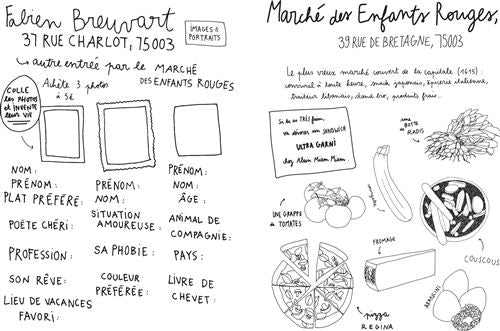 Fabien Breuvart
37 RUE CHARLOT, 75003
IMAGES &
PORTRAITS
autre entrée par le MARCHÉ
DES ENFANTS ROUGES
COLLE
les PHOTOS
et INVENTE
leur VIE
Achète 3 photos
à 5€
NOM:
PRÉNOM:
PLAT PRÉFÉRÉ:
POÈTE CHÉRI:
PROFESSION:
SON RÊVE:
LIEU DE VACANCES
FAVORI:
PRÉNOM:
NOM:
SITUATION
AMOUREUSE:
SA PHOBIE:
COULEUR
PRÉFÉRÉE:
PRÉNOM:
NOM:
ÂGE:
ANIMAL DE
COMPAGNIE:
PAYS:
LIVRE DE
CHEVET:
Marché des Enfants Rouges,
39 RUE DE BRETAGNE, 75003
Le plus vieux marché couvert de la capitale (1615):
convivial à toute heure, snack japonais, épicerie italienne,
traiteur libanais, stand bio, produits frais...
Si tu as TRÈS faim,
va dévorer un SANDWICH
ULTRA GARNI
chez Alain Miam Miam.
une
BOTTE
de
RADIS
courgette
UNE GRAPPE
de TOMATES
COUSCOUS
FROMAGE
ARANCINI
pizza
REGINA